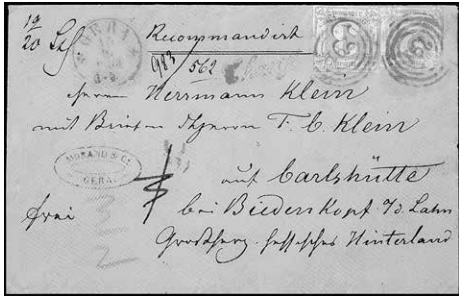 19/20 Lth
GERA
Recommandirt
983/562
Herrn Herrmann Klein
mit Briefen Th. Herrn T. C. Klein
MORAND & Co
GERA.
auf Carlshütte
frei
bei Biedenkopf a/d. Lahn
Großherz. hessisches Hinterland